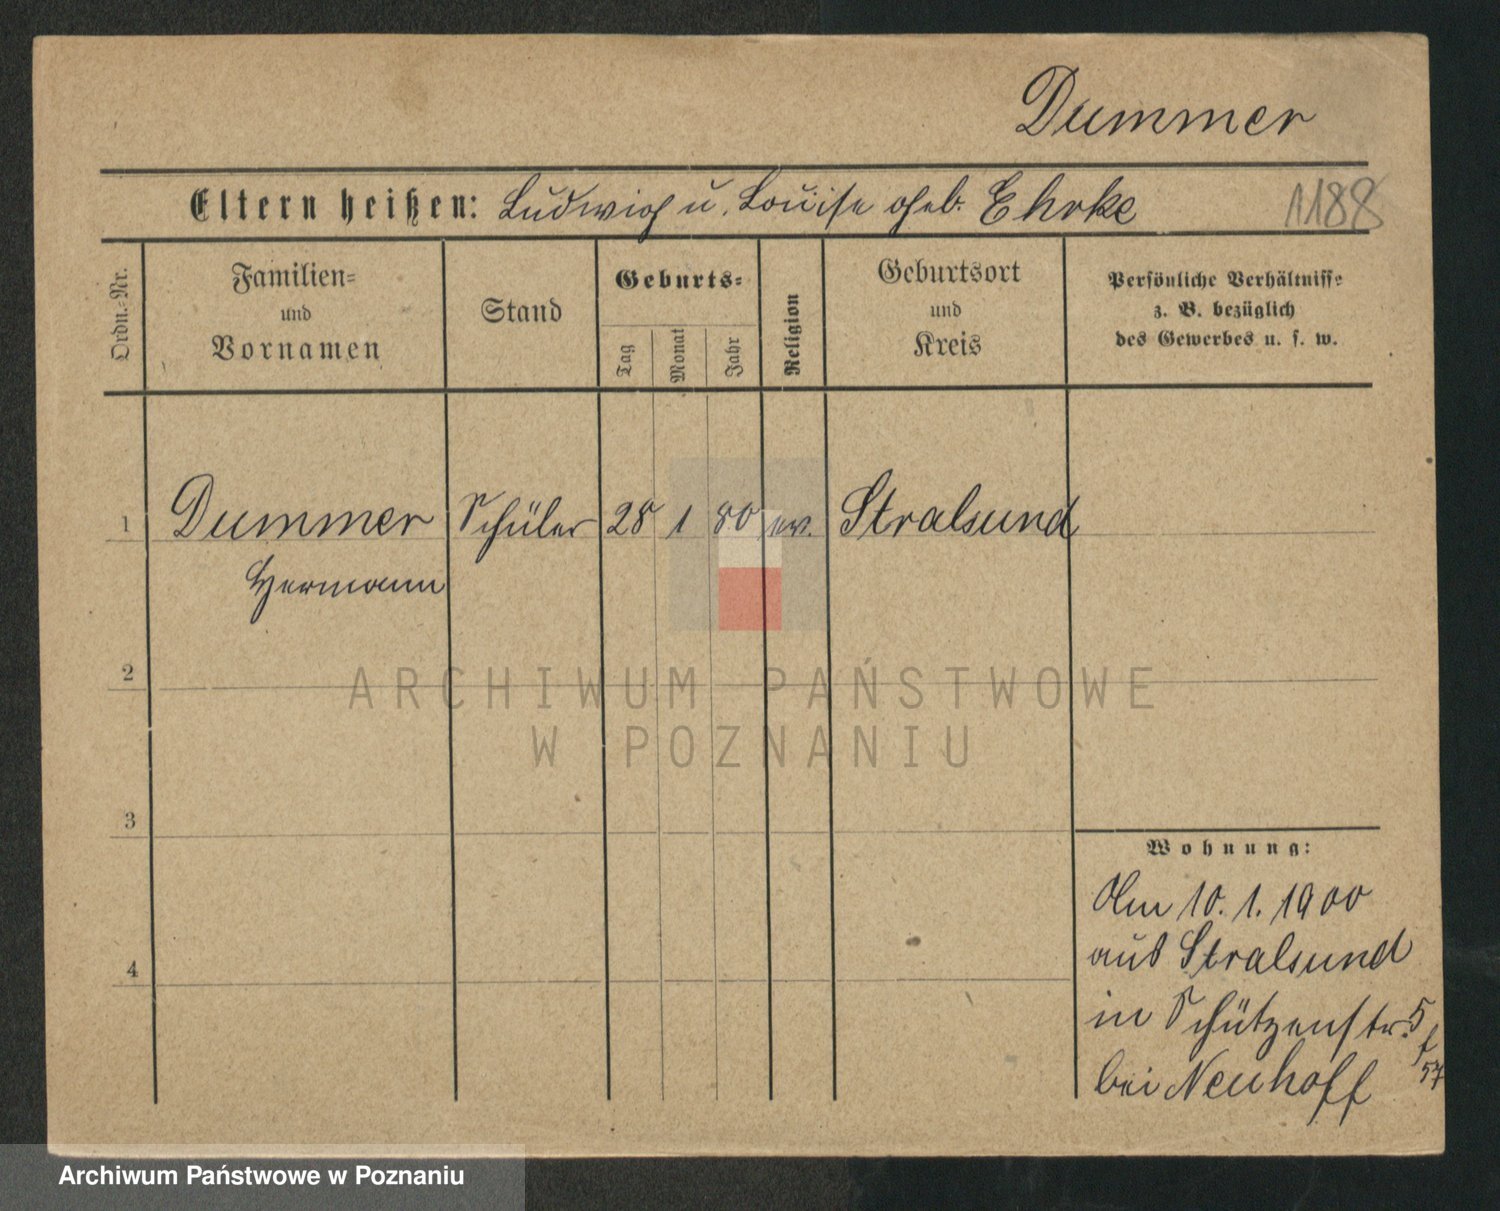 Dummer
Eltern heißen: Ludwig u. Louise geb. Ehrke 1188
Ordn.-Nr.
Familien-
und
Vornamen
Stand
Geburts-
Tag
Monat
Jahr
Religion
Geburtsort
und
Kreis
Persönliche Verhältnisse
z. B. bezüglich
des Gewerbes u. s. w.
1 Dummer Schüler 28 1 80 ev. Stralsund
Hermann
2
ARCHIWUM PAŃSTWOWE
W POZNANIU
3
Wohnung:
Am 10. 1. 1900
aus Stralsund
4
in Schützenstr. 5
bei Neuhoff 57
Archiwum Państwowe w Poznaniu